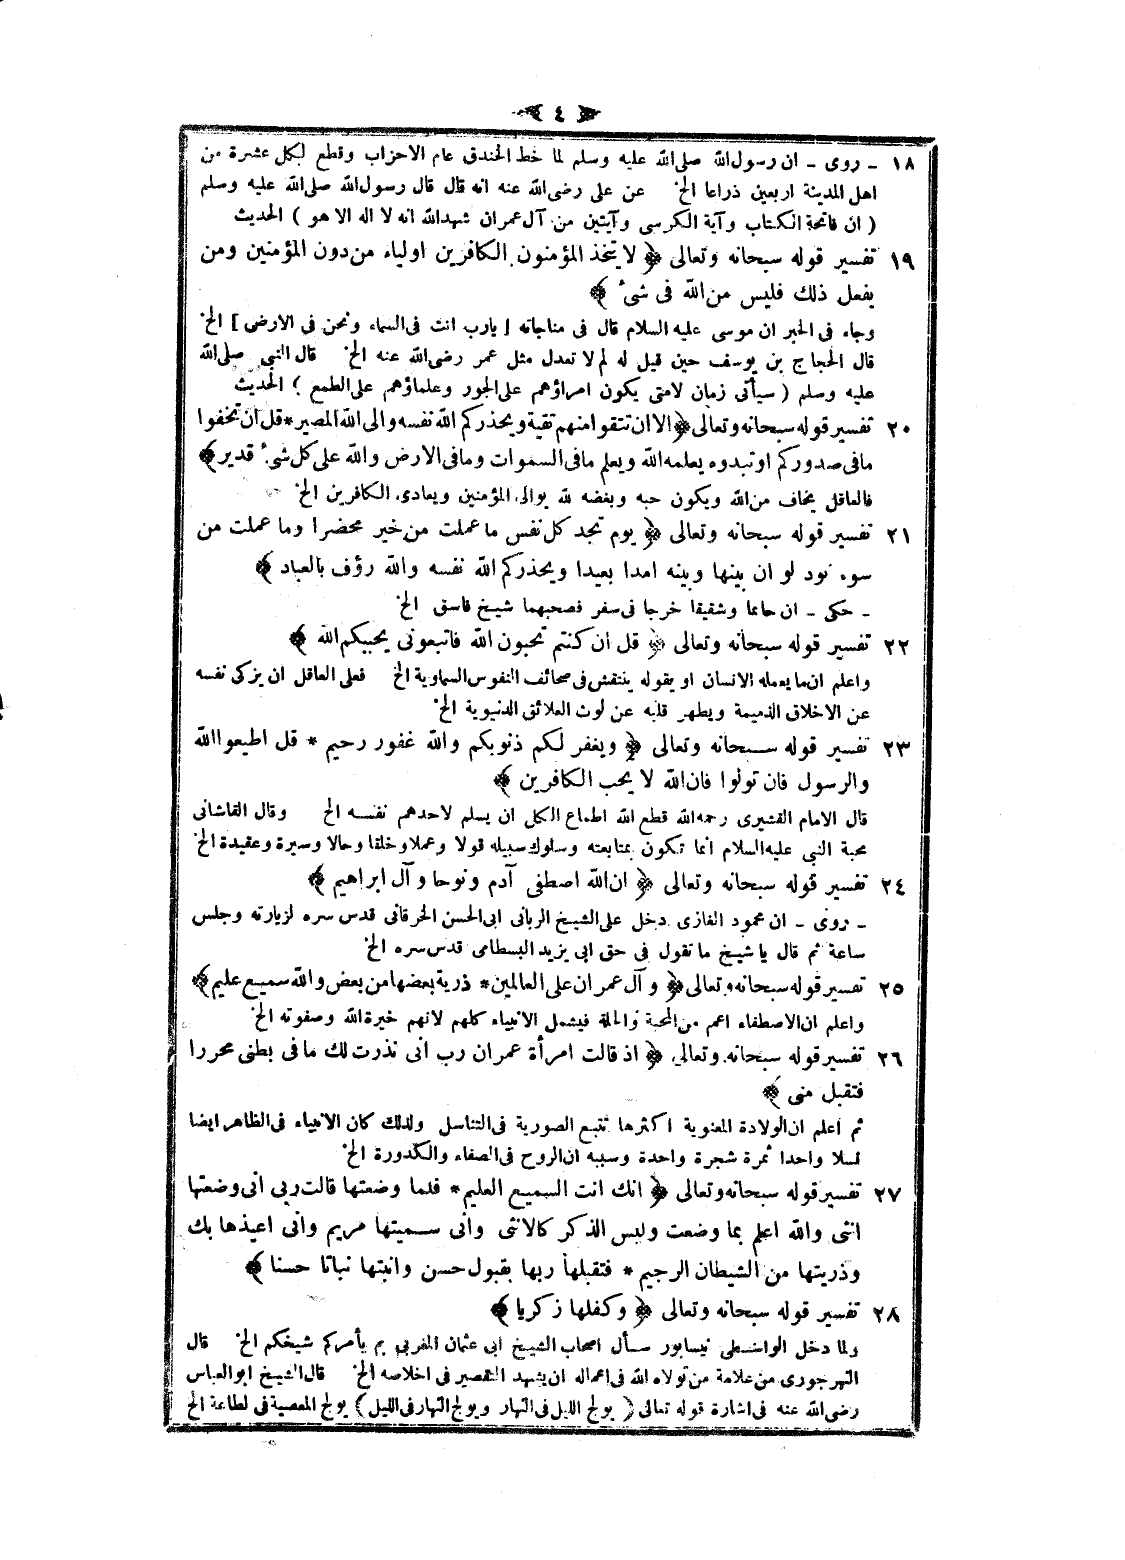 ﴿ ٤ ﴾
١٨ ـ روى ـ ان رسول الله صلى الله عليه وسلم لما خط الخندق عام الاحزاب وقطع لكل عشرة من
اهل المدينة اربعين ذراعا الخ عن على رضى الله عنه انه قال قال رسول الله صلى الله عليه وسلم
( ان فاتحة الكتاب وآية الكرسى وآيتين من آل عمران شهد الله انه لا اله الا هو ) الحديث
١٩ تفسير قوله سبحانه وتعالى ﴿ لا يتخذ المؤمنون الكافرين اولياء من دون المؤمنين ومن
يفعل ذلك فليس من الله فى شئ ﴾
وجاء فى الخبر ان موسى عليه السلام قال فى مناجاته [ يارب انت فى السماء ونحن فى الارض ] الخ
قال الحجاج بن يوسف حين قيل له لم لا تعدل مثل عمر رضى الله عنه الخ قال النبى صلى الله
عليه وسلم ( سيأتى زمان لامتى يكون امراؤهم على الجور وعلماؤهم على الطمع ) الحديث
٢٠ تفسير قوله سبحانه وتعالى ﴿ الا ان تتقوا منهم تقية ويحذركم الله نفسه والى الله المصير * قل ان تخفوا
ما فى صدوركم او تبدوه يعلمه الله ويعلم ما فى السموات وما فى الارض والله على كل شئ قدير ﴾
فالعاقل يخاف من الله ويكون حبه وبغضه لله يوالى المؤمنين ويعادى الكافرين الخ
٢١ تفسير قوله سبحانه وتعالى ﴿ يوم تجد كل نفس ما عملت من خير محضرا وما عملت من
سوء تود لو ان بينها وبينه امدا بعيدا ويحذركم الله نفسه والله رؤف بالعباد ﴾
ـ حكى ـ ان حاتما وشقيقا خرجا فى سفر فصحبهما شيخ فاسق الخ
٢٢ تفسير قوله سبحانه وتعالى ﴿ قل ان كنتم تحبون الله فاتبعونى يحببكم الله ﴾
واعلم ان ما يعمله الانسان او يقوله ينتقش فى صحائف النفوس السماوية الخ فعلى العاقل ان يزكى نفسه
عن الاخلاق الذميمة ويطهر قلبه عن لوث العلائق الدنيوية الخ
٢٣ تفسير قوله سبحانه وتعالى ﴿ ويغفر لكم ذنوبكم والله غفور رحيم * قل اطيعوا الله
والرسول فان تولوا فان الله لا يحب الكافرين ﴾
قال الامام القشيرى رحمه الله قطع الله اطماع الكل ان يسلم لاحدهم نفسه الخ وقال القاشانى
محبة النبى عليه السلام انما تكون بمتابعته وسلوك سبيله قولا وعملا وخلقا وحالا وسيرة وعقيدة الخ
٢٤ تفسير قوله سبحانه وتعالى ﴿ ان الله اصطفى آدم ونوحا وآل ابراهيم ﴾
ـ روى ـ ان محمود الغازى دخل على الشيخ الربانى ابى الحسن الخرقانى قدس سره لزيارته وجلس
ساعة ثم قال يا شيخ ما تقول فى حق ابى يزيد البسطامى قدس سره الخ
٢٥ تفسير قوله سبحانه وتعالى ﴿ وآل عمران على العالمين * ذرية بعضها من بعض والله سميع عليم ﴾
واعلم ان الاصطفاء اعم من المحبة والخلة فيشمل الانبياء كلهم لانهم خيرة الله وصفوته الخ
٢٦ تفسير قوله سبحانه وتعالى ﴿ اذ قالت امرأة عمران رب انى نذرت لك ما فى بطنى محررا
فتقبل منى ﴾
ثم اعلم ان الولادة المعنوية اكثرها تتبع الصورية فى التناسل ولذلك كان الانبياء فى الظاهر ايضا
نسلا واحدا ثمرة شجرة واحدة وسببه ان الروح فى الصفاء والكدورة الخ
٢٧ تفسير قوله سبحانه وتعالى ﴿ انك انت السميع العليم * فلما وضعتها قالت ربى انى وضعتها
انثى والله اعلم بما وضعت وليس الذكر كالانثى وانى سميتها مريم وانى اعيذها بك
وذريتها من الشيطان الرجيم * فتقبلها ربها بقبول حسن وانبتها نباتا حسنا ﴾
٢٨ تفسير قوله سبحانه وتعالى ﴿ وكفلها زكريا ﴾
ولما دخل الواسطى نيسابور سأل اصحاب الشيخ ابى عثمان المغربى بم يأمركم شيخكم الخ قال
النهرجورى من علامة من تولاه الله فى اعماله ان يشهد التقصير فى اخلاصه الخ قال الشيخ ابو العباس
رضى الله عنه فى اشارة قوله تعالى ( يولج الليل فى النهار ويولج النهار فى الليل ) يولج المعصية فى لطاعة الخ